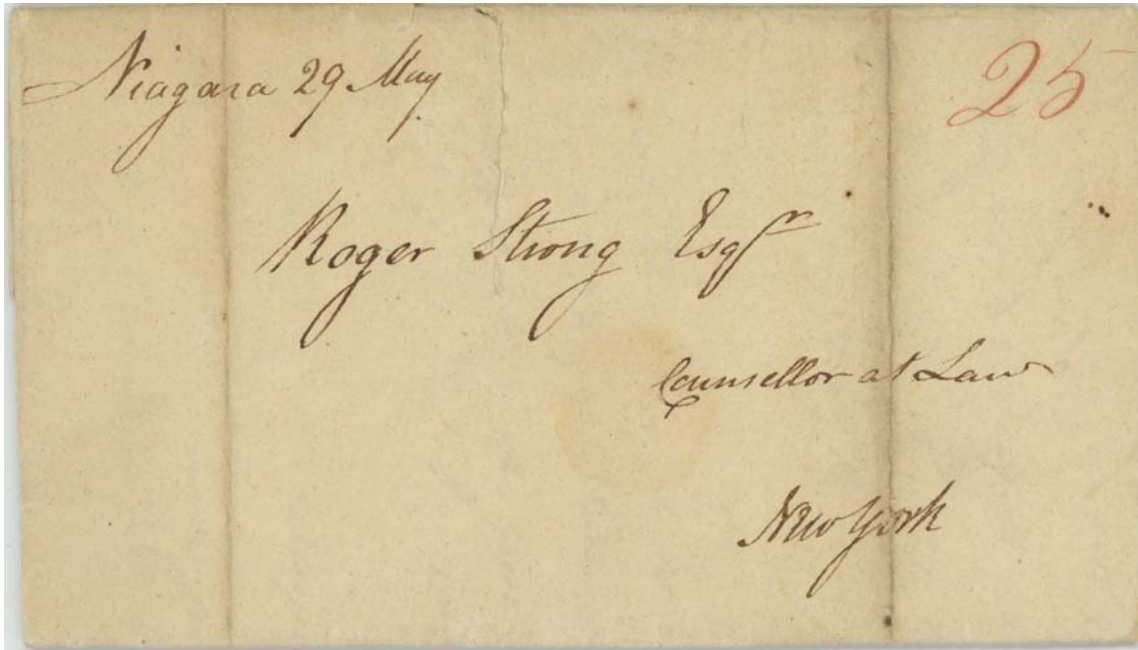 Niagara 29 May
25
Roger Strong Esqr
Counsellor at Law
New York